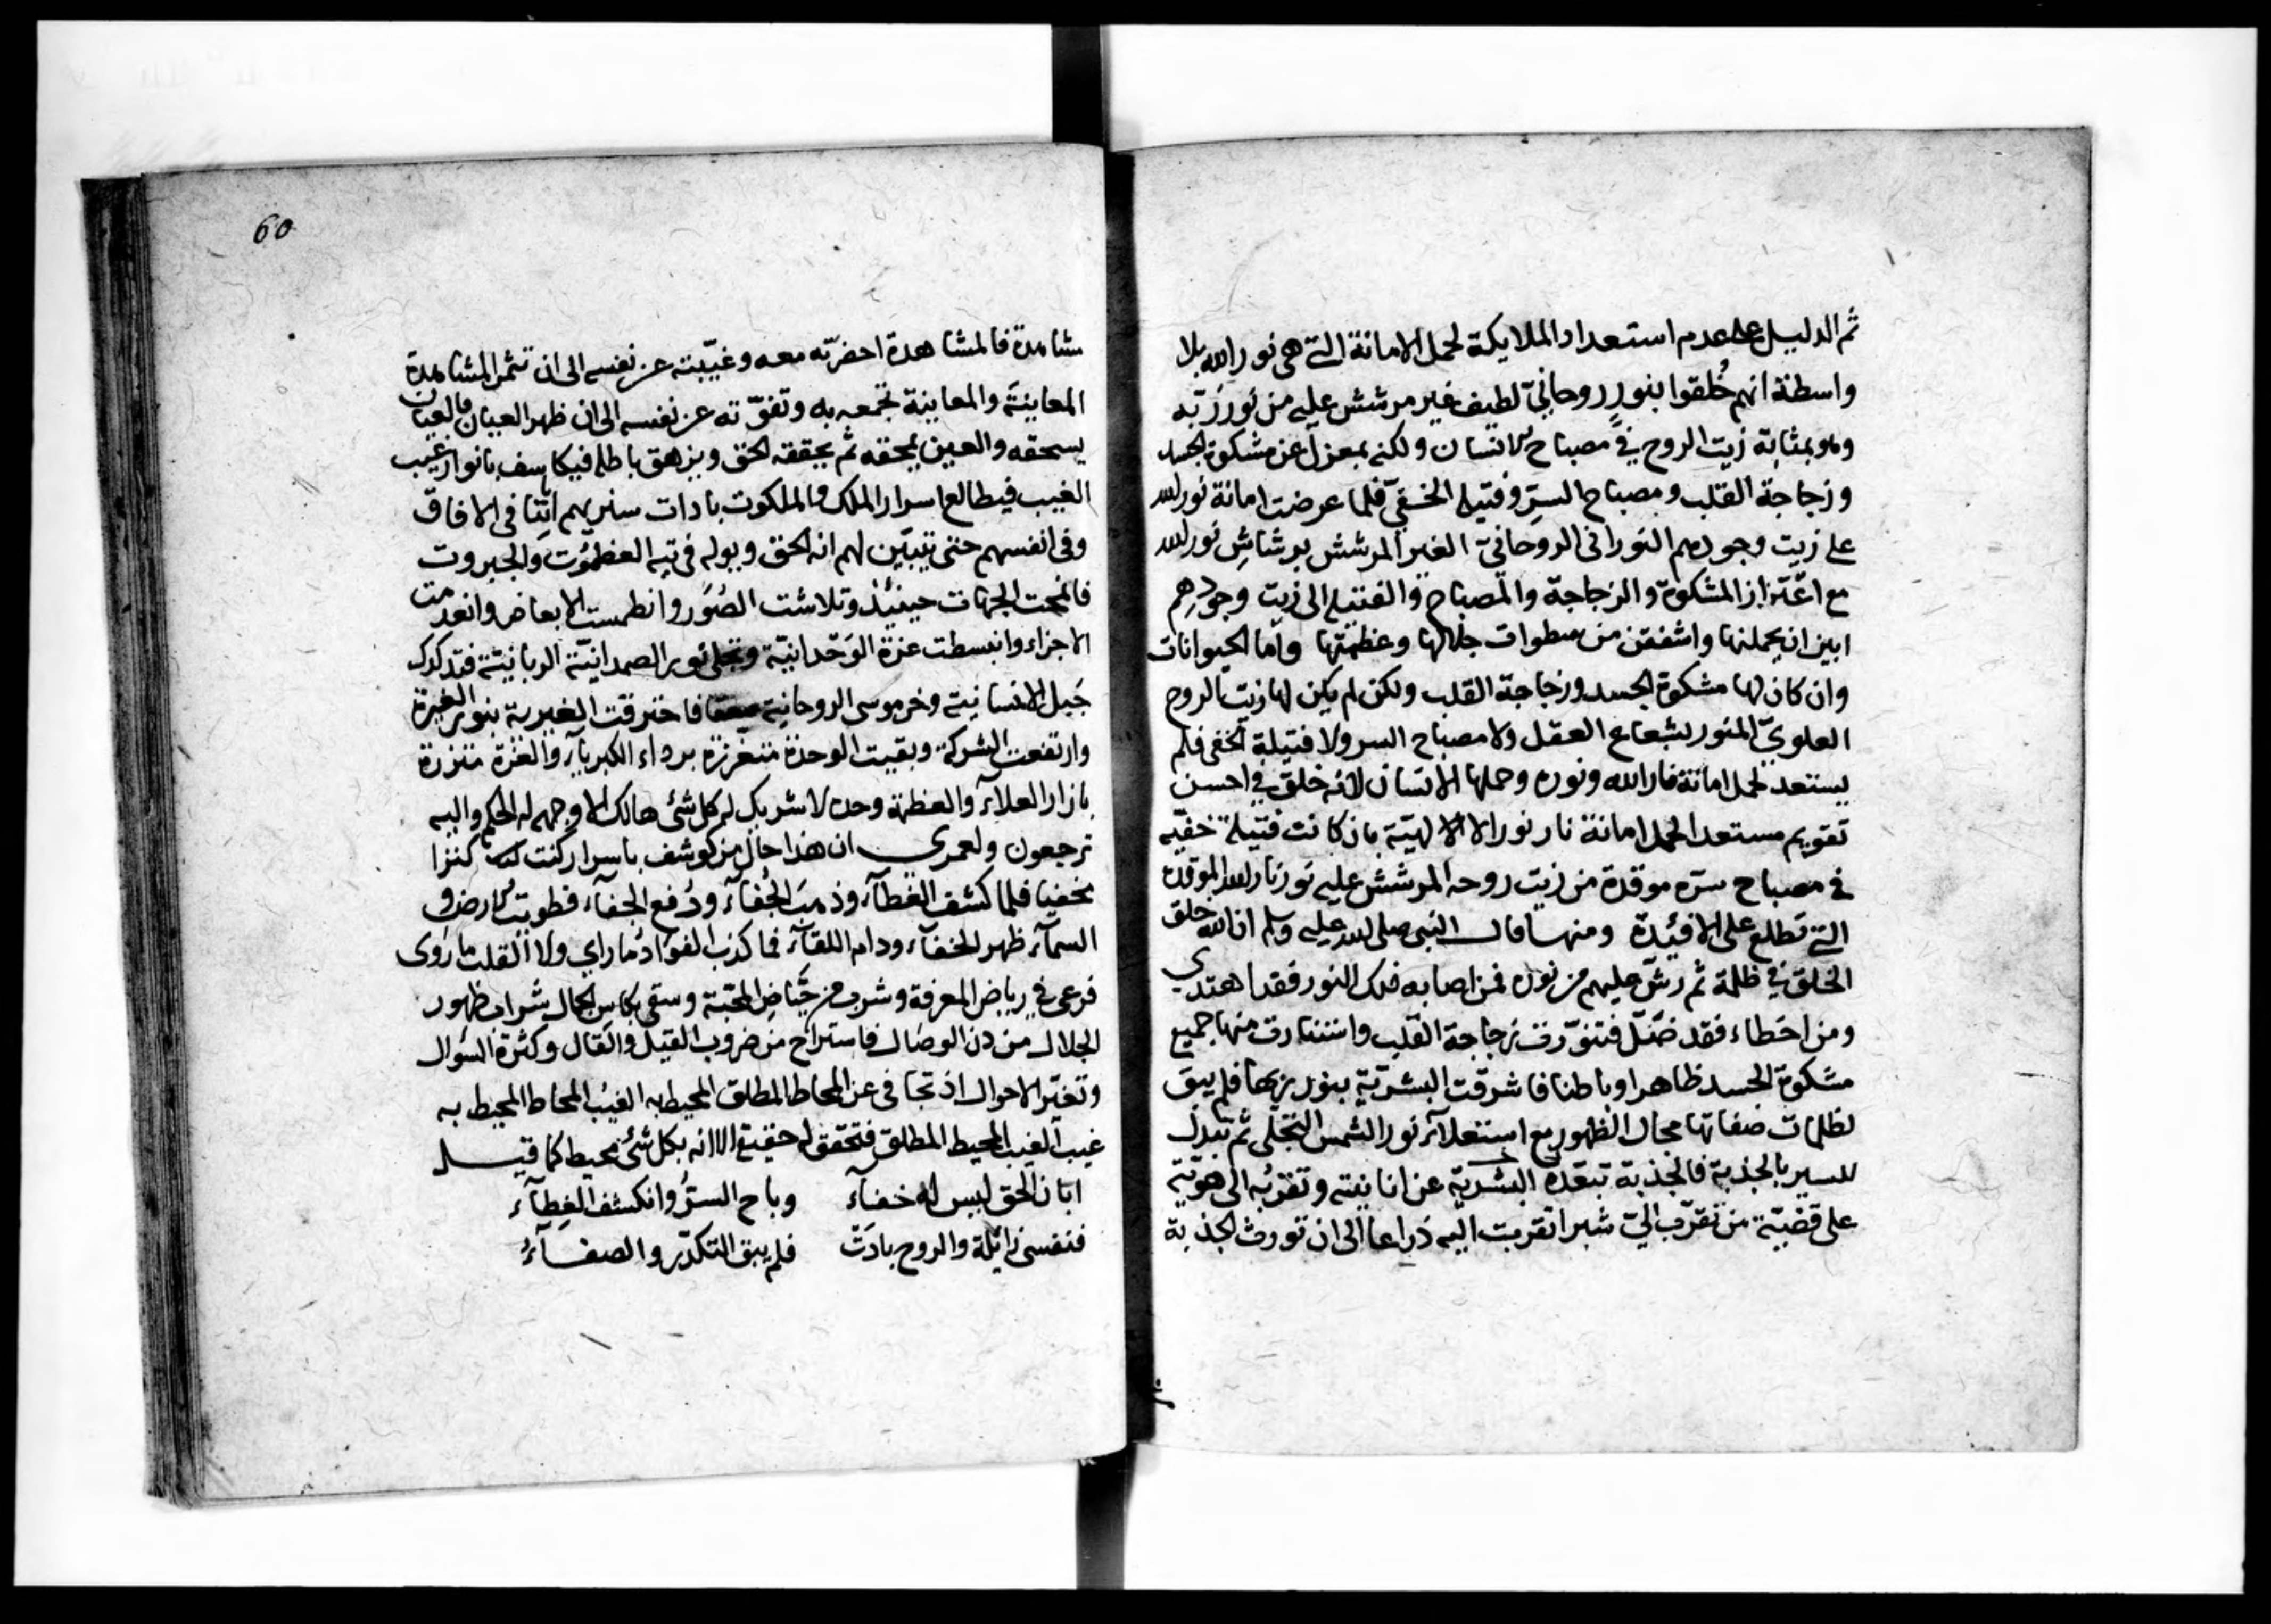 ثم الدليل على عدم استعداد الملايكة لحمل الامانة التي هي نور الله بلا
واسطة انهم خُلقوا بنورٍ روحانيّ لطيف غير مرشش عليه من نور ربّه
وهو بمثابة زيت الروح في مصباح الانسان ولكنه بمعزل عن مشكوة الجسد
وزجاجة القلب ومصباح السرّ وفتيلة الخفيّ فلما عرضت امانة نور الله
على زيت وجودهم النورانى الروحانيّ الغير المرشش برشاشِ نور الله
مع اعتزاز المشكوة والزجاجة والمصباح والفتيلة الى زيت وجودِهم
ابين ان يحملنها واشفقن من سطوات جلالها وعظمتها واما الحيوانات
وان كان لها مشكوة الجسد وزجاجة القلب ولكن لم يكن لها زيت الروح
العلويّ المنور بشعاع العقل ولا مصباح السر ولا فتيلة الخفى فلم
يستعد لحمل امانة نار الله ونوره وحملها الانسان لانه خلق في احسن
تقويم مستعدا لحمل امانة نار نور الا الالهيّة بان كانت فتيلة خفيّه
في مصباح سرّه موقدة من زيت روحه المرشش عليه نور نار الله الموقدة
التي تطلع على الافئدة ومنها قال النبي صلى الله عليه وسلم ان الله خلق
الخلق في ظلمة ثم رشّ عليهم من نوره فمن اصابه ذلك النور فقد اهتدي
ومن اخطاء فقد ضَلّ فتنوّرت زجاجة القلب واستنارت منها جميع
مشكوة الجسد ظاهرا وباطنا فاشرقت البشريّة بنور ربها فلم يبق
لظلمات صفاتها مجال الظهور مع استعلاء نور الشمس التجلّى ثم تبدل
للسير بالجذبة فالجذبة تبعّده البشريّة عن انانيته وتقربه الى هويّته
على قضيّة من تقرّب اليّ شبرا تقربت اليه ذراعا الى ان تورث الجذبة
60
مشاهدة فالمشاهدة احضرته معه وغيّبته عن نفسه الى ان تثمر المشاهدة
المعاينة والمعاينة تجمعه به وتفوّته عن نفسه الى ان ظهر العيان فالعيان
يسحقه والعين يمحقه ثم يحققه الحق ويزهق باطله فيكاشف بانوار غيب
الغيب فيطالع اسرار الملك والملكوت بادات سنريهم اٰيٰتنا فى الافاق
وفى انفسهم حتى تتبيّن لهم انه الحق ويوله فى تيه العظموت والجبروت
فانمحت الجهات حينئذ وتلاشت الصُوَر وانطمست الابعاض وانعدمت
الاجزاء وانبسطت عزة الوَحْدانيّة وتجلى نور الصمدانيّة الربانيّة فتدكدك
جَبل الانسانيّة وخر موسى الروحانية صعقا فاحترقت الغيرية بنور الغيرة
وارتفعت الشركة وبقيت الوحدة متعززة برداء الكبرياء والعزة متزرة
بازار العلاء والعظمة وحده لا شريك له كل شئ هالك الا وجهه له الحكم واليه
ترجعون ولعمري ان هذا حال من كوشف باسرار كنت كنزا
مخفيا فلما كشف الغطاء وذهبَ الجُفاء ودُفع الجفاء فطويت الارض و
السماء ظهر الخفاء ودام اللقاء فما كذب الفواد ما راي ولا القلب ما روى
فرعى في رياض المعرفة وشرب من حِيَاض المحبّة وسقي بكاس الجمال شراب ظهور
الجلال من دن الوصال فاستراح من ضروب القيل والقال وكثرة السؤال
وتغيّر الاحوال اذ تجافى عن المحاط المطلق المحيط به الغيب المحاط المحيط به
غيب الغيب المحيط المطلق فتحقق له حقيقة الا انه بكل شئ محيط كما قيل
ابان الحق ليس له خفاء وباح السرُّ وانكشف الغطاء
فنفسى زائلة والروح بادَتْ فلم يبق التكدّر والصفاءُ